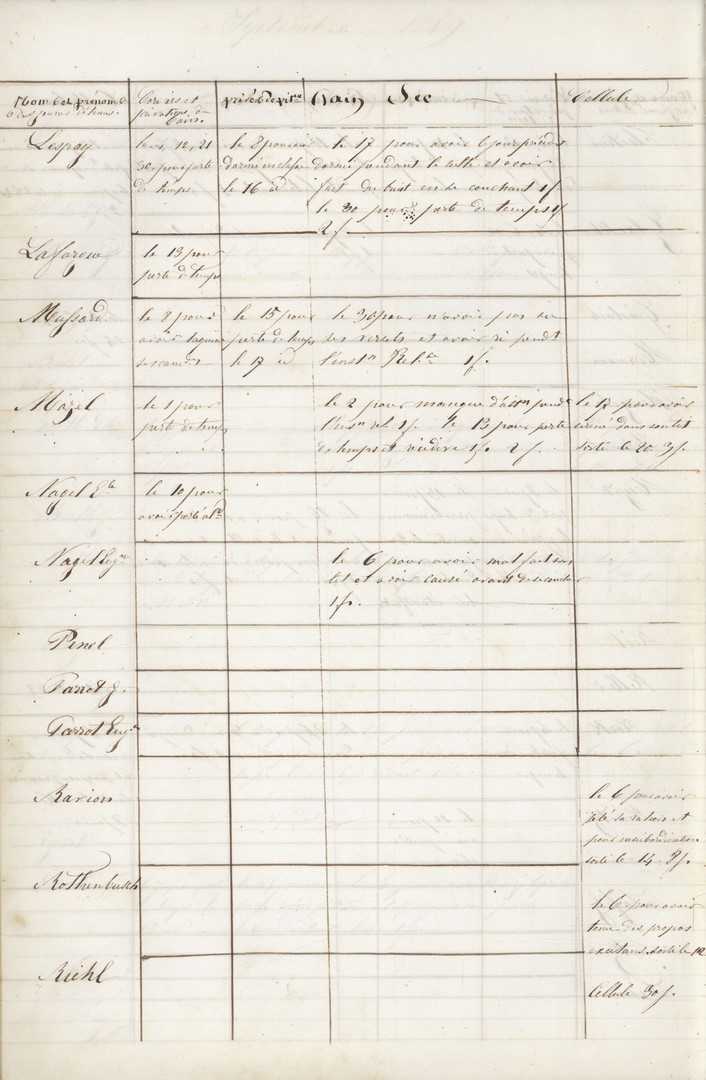 Septembre
Noms et prénoms
des jeunes détenus.
Corvées et
privations
pain.
privés de pitce
Pain Sec
Cellule
Lespay
le 4, 12, 21
30 pour perte
de temps
le 8 pour
dormi en classe
le 16 id
le 17 pour avoir le jour précédt
dormi pendant la et avoir
fait du bruit en se couchant 1 f.
le 30 pour perte de temps 1 f
2 f.
le 13 pour
perte de temps
Mussard
le 8 pour
avoir
le 15 pour
perte de temps
le 17 id
le 30 pour n'avoir pas su
ses versets et avoir ri pendt
l'instn Relse 1 f.
Mozel
le 1 pour
perte de temps
le 2 pour manque d'attn pendt
l'insn rel. 1 f. le 13 pour perte
de temps et 1 f. 2 f.
le 17 pour avoir
dans son lit
sortie le 20. 3 f.
Nagel Ete
le 10 pour
avoir parlé
Nagel Eugne
le 6 pour avoir mal fait son
lit et avoir causé avant de se coucher
1 f.
Penel
Parrot J.
Parrot Eugne
Rarion
le 6 pour avoir
jeté sa ration et
pour insubordination
sortie le 14. 8 f.
Rothenbusch
le 6 pour avoir
tenu des propos
excitans. sortie le 12
Riehl
Cellule 30 f.